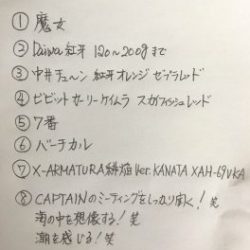 ① 魔女
② Daiwa 紅牙 120~200gまで
③ 中井チューン 紅牙オレンジ ゼブラレッド
④ ビビットセーリーケイムラ スカフィッシュレッド
⑤ 7番
⑥ バーチカル
⑦ X-ARMATURA 緋焔 Ver. KANATA XAH-69VKA
⑧ CAPTAINのミーティングをしっかり聞く! 笑
海の中を想像する! 笑
潮を感じる! 笑